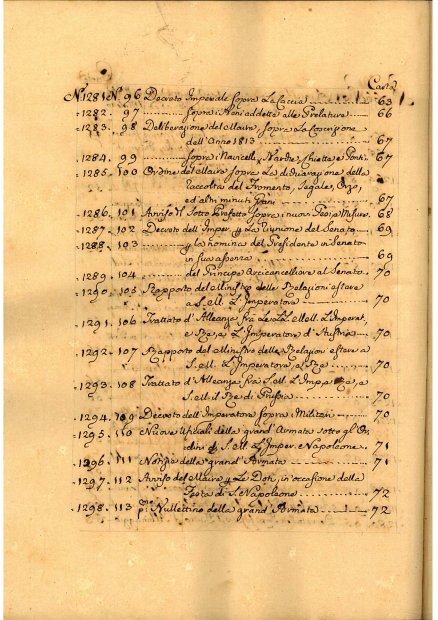 Carte
N. 1281. N. 96 Decreto Imperiale sopra La Caccia 63
1282. 97 sopra i Beni addetti alle Prelature 66
1283. 98 Deliberazione del Maire sopra La Coscrizione
dell'Anno 1813 67
1284. 99 sopra i Navicelli, Barche, Chiatte e Ponti. 67
1285. 100 Ordine del Maire sopra La dichiarazione della
raccolta del Fromento, Segale, Orzo,
ed altri minuti Grani 67
1286. 101 Avviso Il Sotto Prefetto sopra i nuovi Pesi, a Misure. 68
1287. 102 Decreto dell'Imper. La riunione del Senato 69
1288. 103 la nomina del Presidente in Senato
in sua assenza 69
1289. 104 del Principe Arcicancelliere al Senato. 70
1290. 105 Rapporto del Ministro delle Relazioni estere
a S. M. L'Imperatore 70
1291. 106 Trattato d'Alleanza frà Le LL. MM. L'Imperat.
e Rè, a L'Imperatore d'Austria 70
1292. 107 Rapporto del Ministro delle Relazioni estere a
S. M. L'Imperatore, al Rè 70
1293. 108 Trattato d'Alleanza frà S. M. L'Imp. a Rè, a
S. M. il Rè di Prussia 70
1294. 109 Decreto dell'Imperatore sopra i Militari 70
1295. 110 Nuove Ufficiali della grand'Armata sotto gl'Or-
dini di S. M. L'Imper. Napoleone. 71
1296. 111 Notizie della grand'Armata 71
1297. 112 Avviso del Maire Le Doti, in occasione della
Festa di S. Napoleone 72
1298. 113 pmo. Bullettino della grand'Armata 72